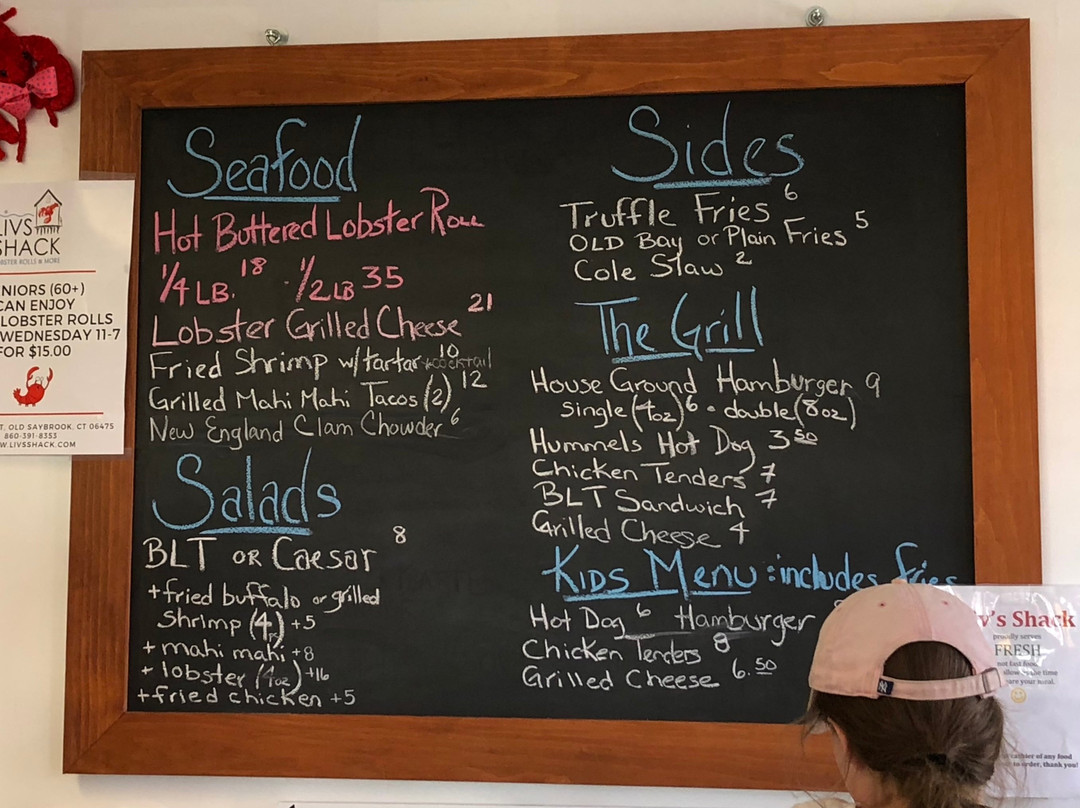 Seafood
Hot Buttered Lobster Roll
1/4 LB. 18 1/2 LB 35
Lobster Grilled Cheese 21
Fried Shrimp w/tartar + cocktail 10
Grilled Mahi Mahi Tacos (2) 12
New England Clam Chowder 6
Salads
BLT OR Caesar 8
+ fried buffalo or grilled
Shrimp (4pc) +5
+ mahi mahi +8
+ lobster (4oz) +16
+ fried chicken +5
Sides
Truffle Fries 6
OLD Bay or Plain Fries 5
Cole Slaw 2
The Grill
House Ground Hamburger 9
single (4oz) 6 • double (8oz)
Hummels Hot Dog 3 50
Chicken Tenders 7
BLT Sandwich 7
Grilled Cheese 4
Kids Menu : includes fries
Hot Dog 6 Hamburger
Chicken Tenders 8
Grilled Cheese 6.50
LIVS
SHACK
LOBSTER ROLLS & MORE
NIORS (60+)
CAN ENJOY
LOBSTER ROLLS
WEDNESDAY 11-7
FOR $15.00
T. OLD SAYBROOK, CT 06475
860-391-8353
W.LIVSSHACK.COM
v's Shack
proudly serves
FRESH
not fast food
the time
your meal.
of any food
to order, thank you!
NY